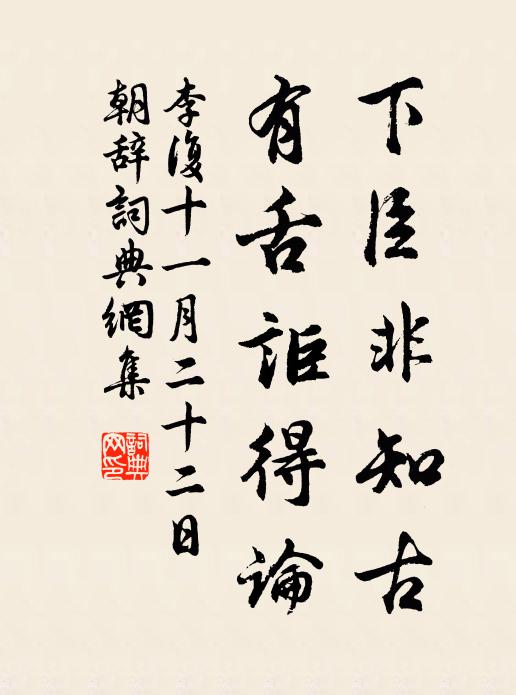 下臣非知古
有舌詎得論
李復十一月二十二日
朝辞詞典網集
詞典
网印